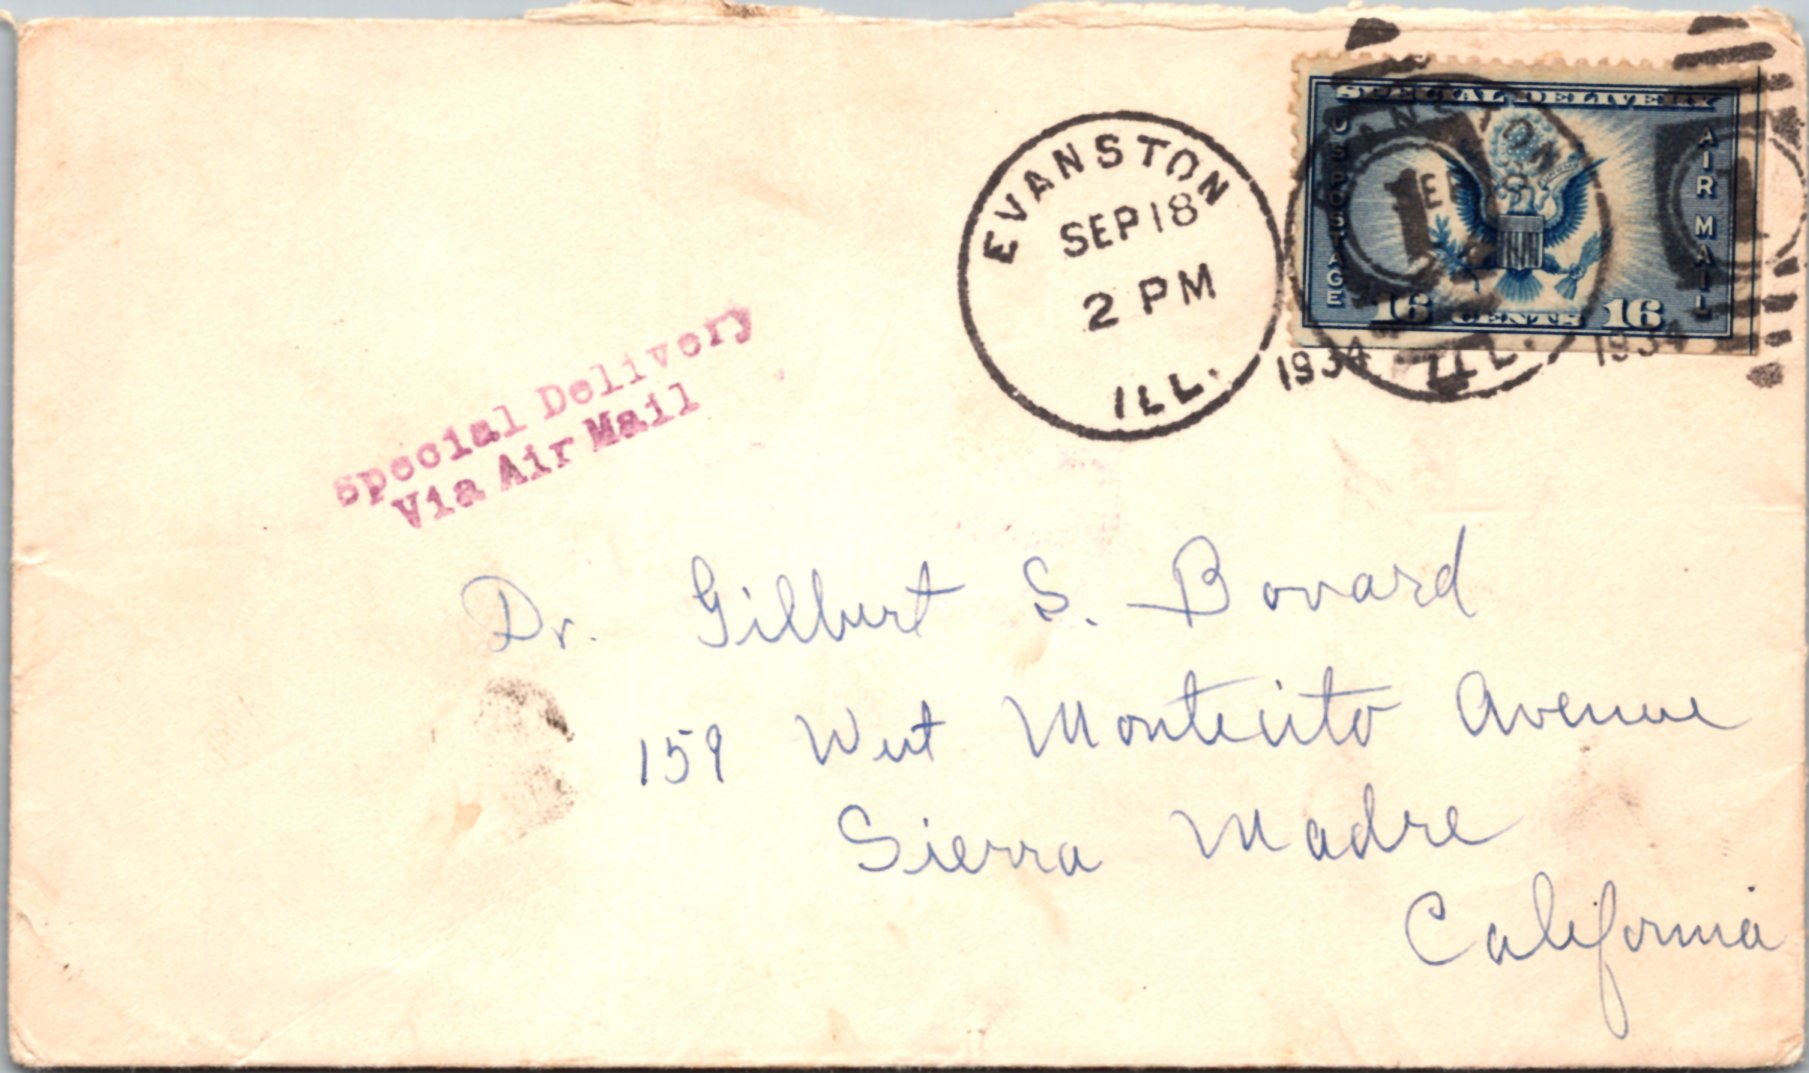 EVANSTON
SEP 18
2 PM
ILL.
1934
SPECIAL DELIVERY
U.S. POSTAGE
AIR MAIL
16 CENTS 16
ILL.
1934
Special Delivery
Via Air Mail
Dr. Gilbert S. Bovard
159 West Montecito Avenue
Sierra Madre
California